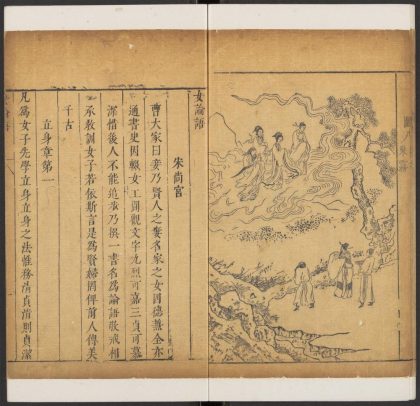 女論語
宋尚宮
曹大家曰妾乃賢人之妻名家之女四德兼全亦
通書史因輟女工閒觀文字九烈可嘉三貞可慕
深惜後人不能追承乃撰一書名為論語敬戒相
承教訓女子若依斯言是為賢婦罔俾前人傳美
千古
立身章第一
凡爲女子先學立身立身之法惟務清貞清則身潔